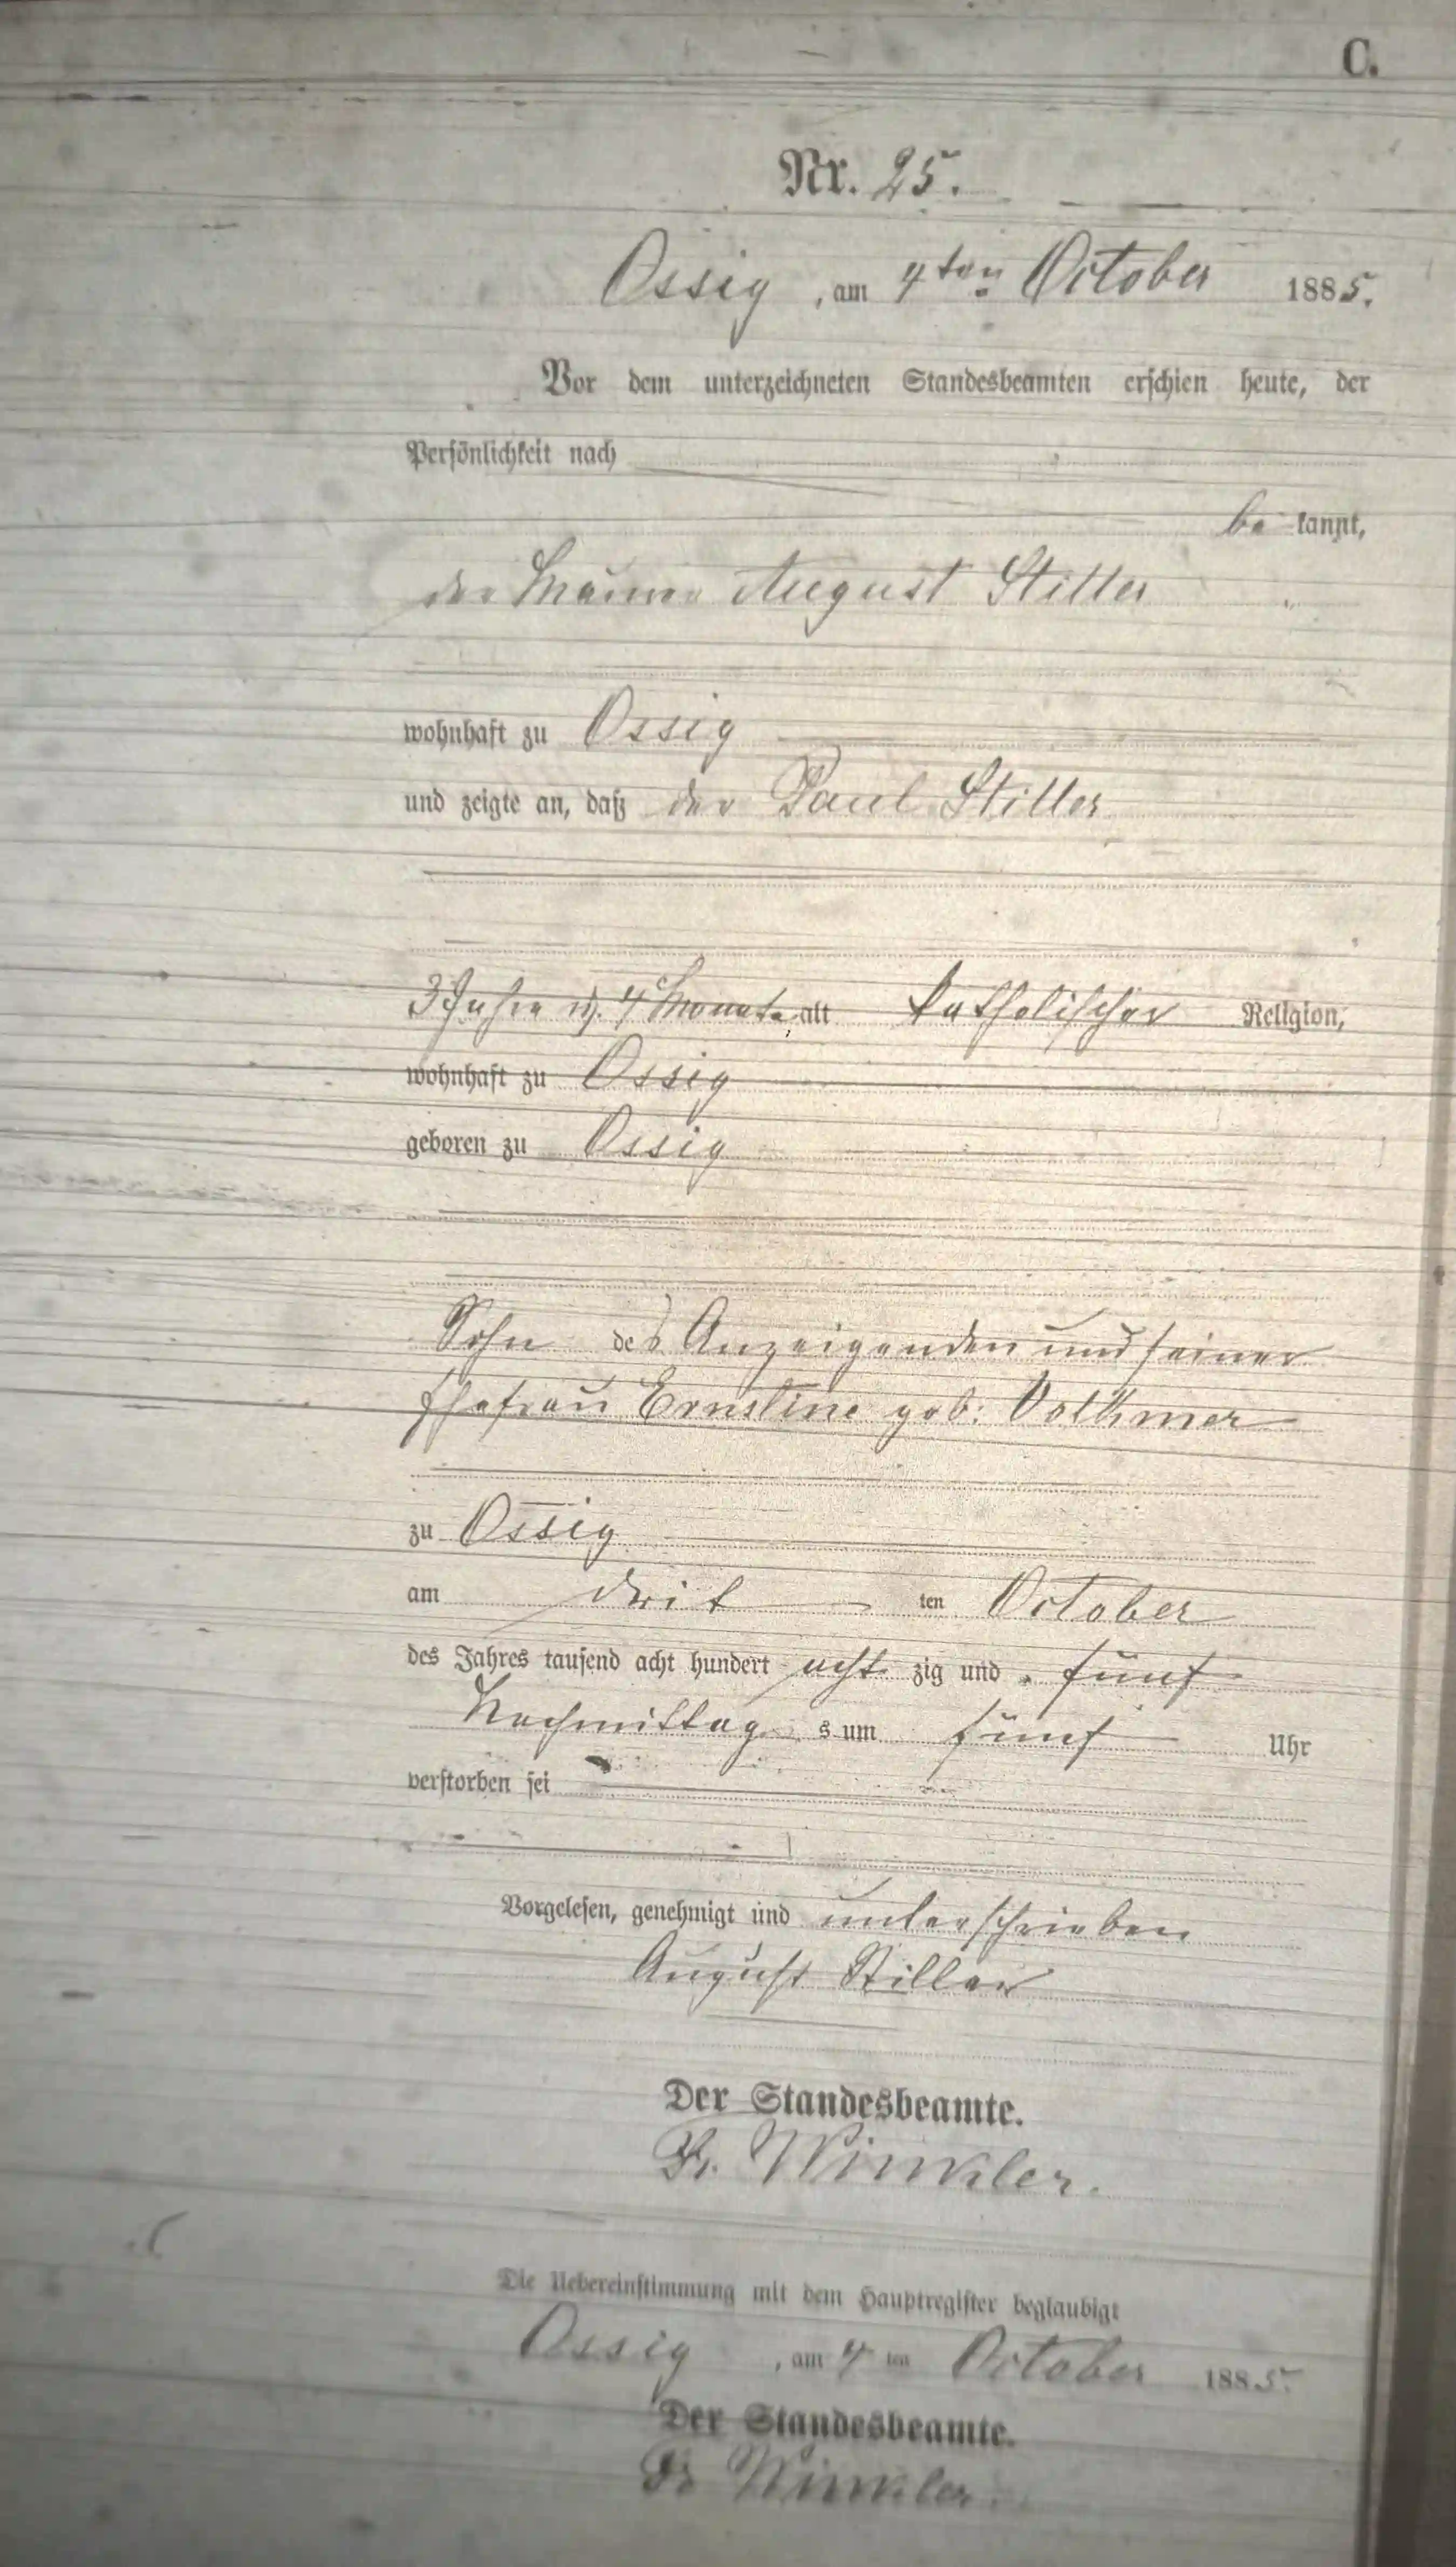 C.
Nr. 25.
Ossig, am 4ten October 1885.
Vor dem unterzeichneten Standesbeamten erschien heute, der
Persönlichkeit nach
be kannt,
der Maurer August Stiller
wohnhaft zu Ossig
und zeigte an, daß der Paul Stiller
3 Jahre u. 4 Monate alt katholischer Religion,
wohnhaft zu Ossig
geboren zu Ossig
Sohn des Anzeigenden und seiner
Ehefrau Ernstine geb: Volkmer
zu Ossig
am drit ten October
des Jahres tausend acht hundert acht zig und fünf
Nachmittag s um fünf Uhr
verstorben sei
Vorgelesen, genehmigt und unterschrieben
August Stiller
Der Standesbeamte.
Fr. Winkler.
Die Uebereinstimmung mit dem Hauptregister beglaubigt
Ossig, am 4 ten October 1885.
Der Standesbeamte.
Fr Winkler.